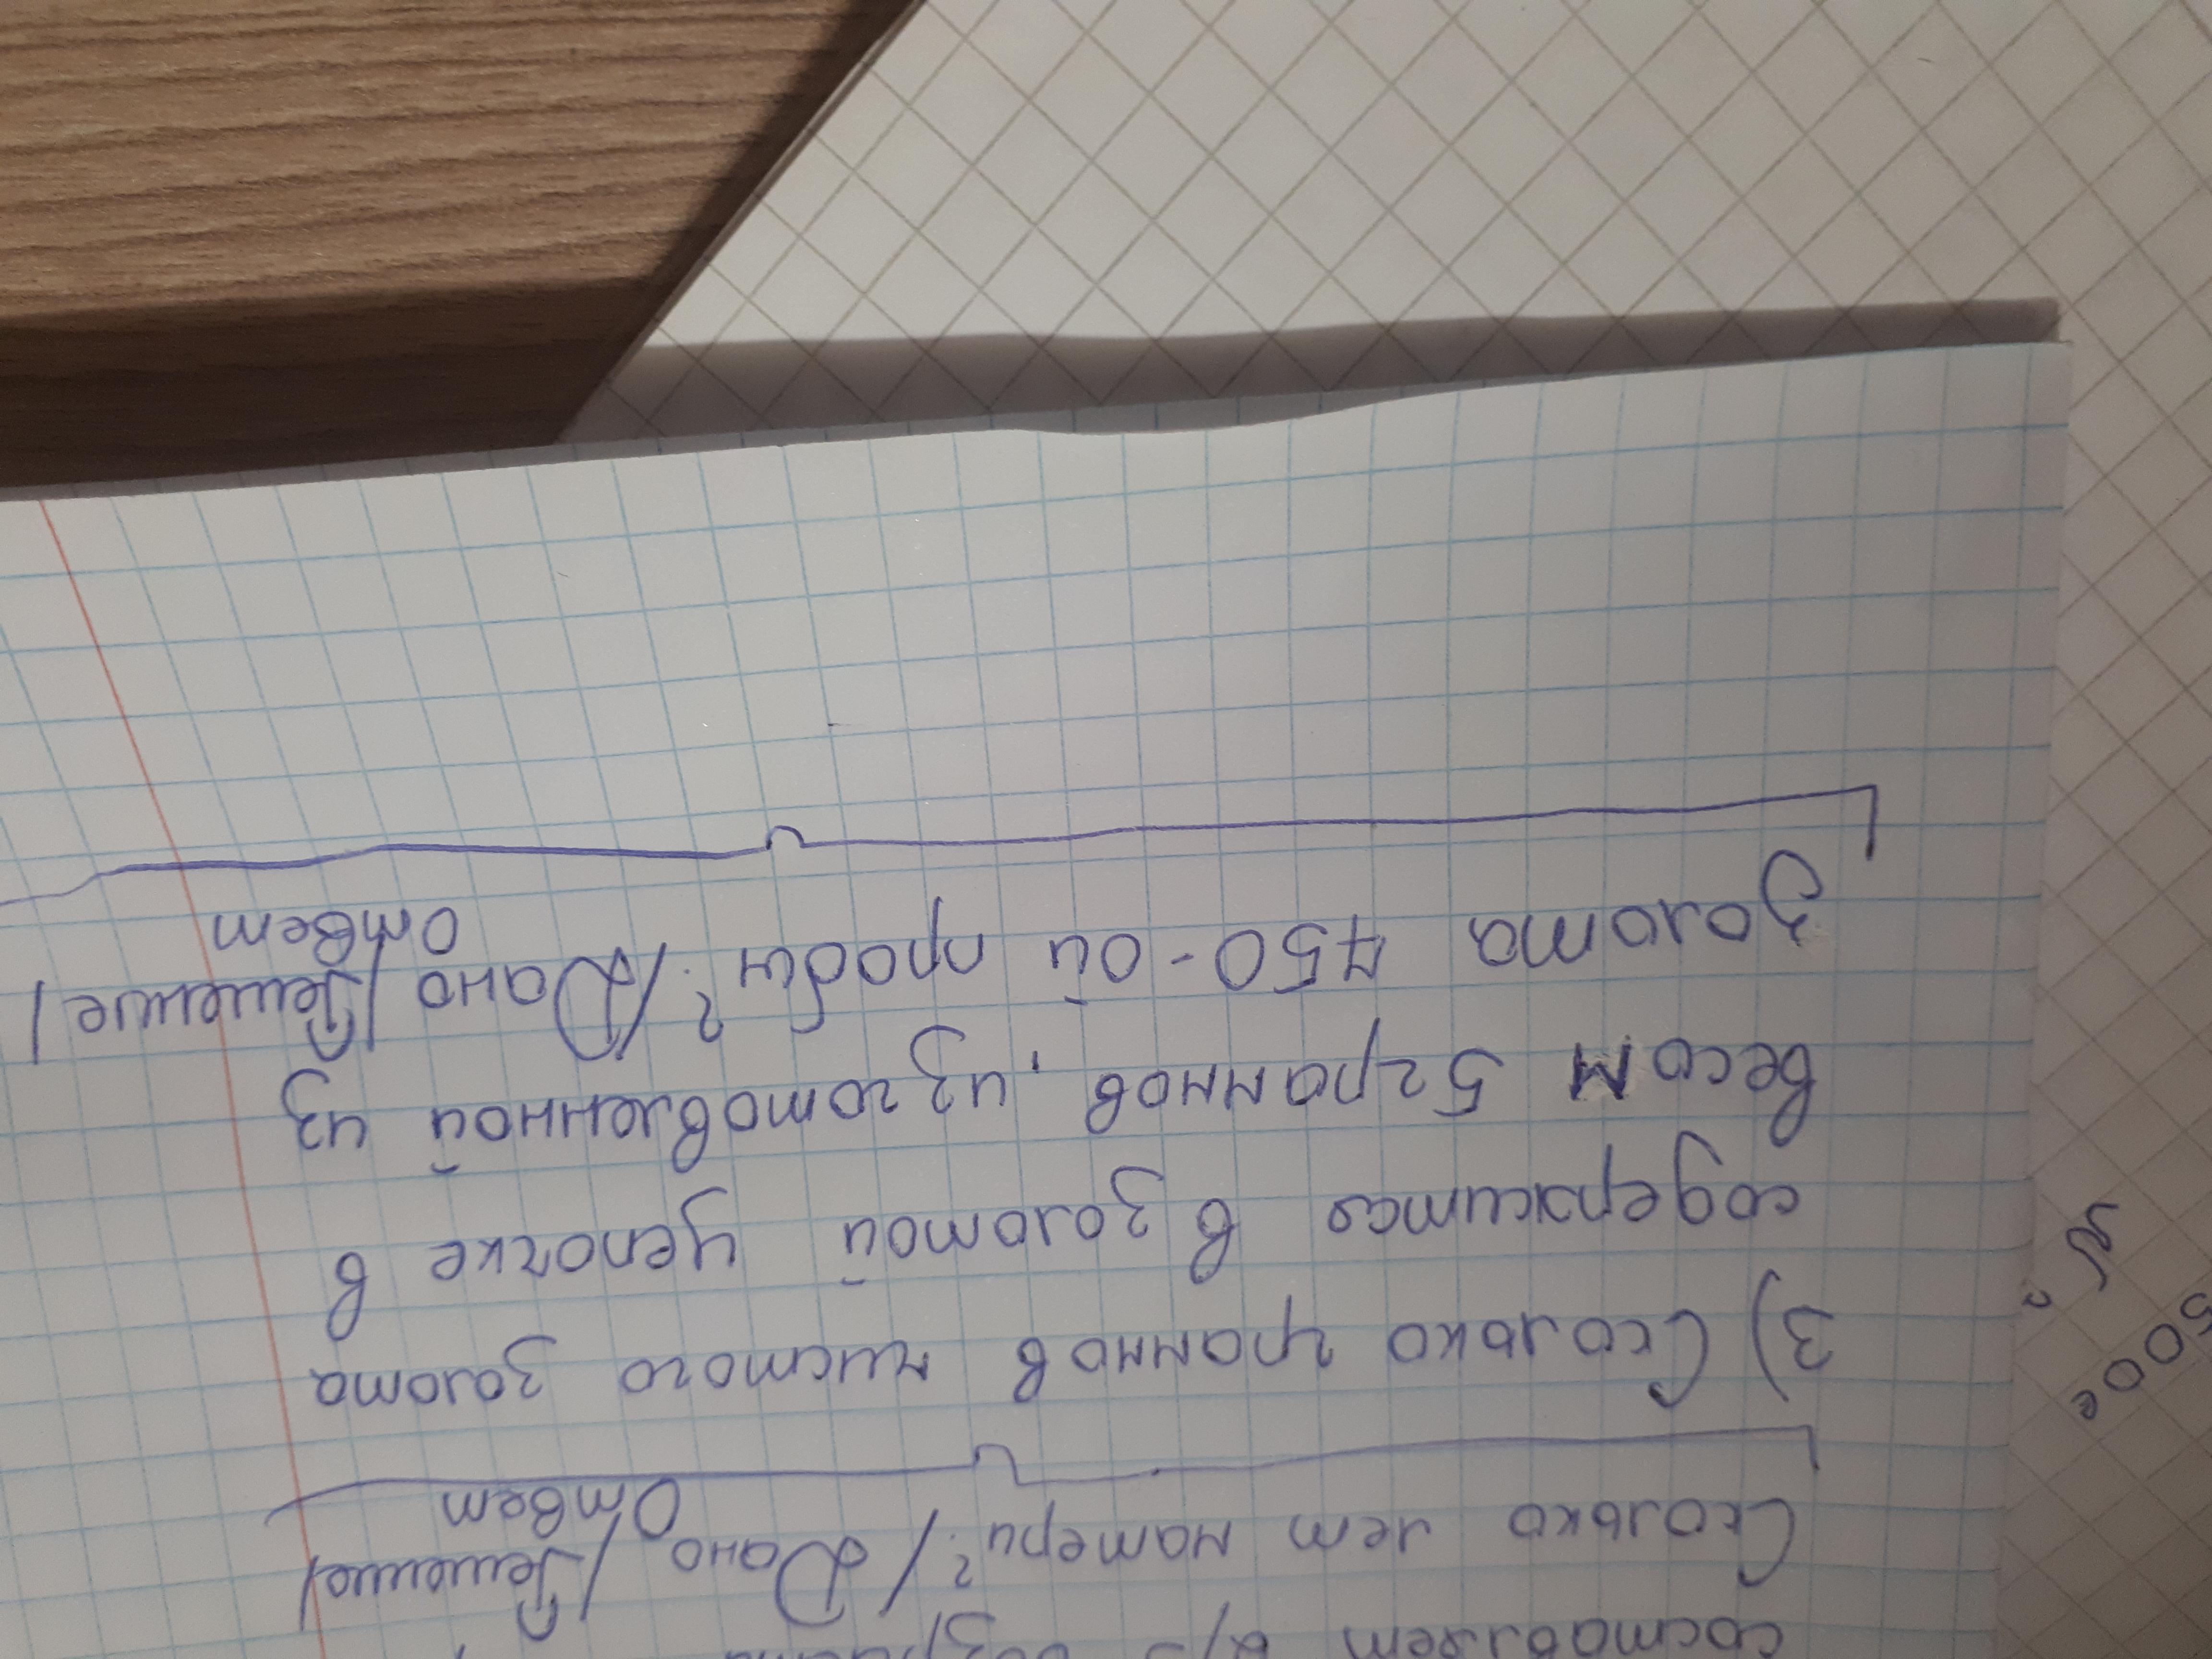 составляет 2/5 возраста
Сколько лет матери? / Дано / Решение /
Ответ
3) Сколько граммов чистого золота
содержится в золотой цепочке в
весом 5 граммов, изготовленной из
золота 750-ой пробы? / Дано / Решение /
Ответ
500с